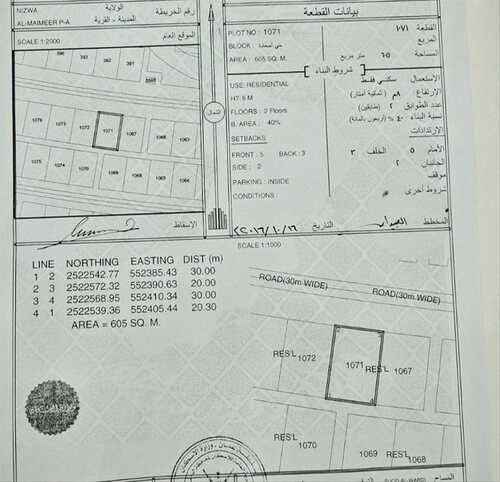 NIZWA
الولاية
رقم الخريطة
AL-MAIMEER P-A
المدينة - القرية
SCALE 1:2000
الموقع العام
1076
1072
1071
1067
1066
1065
1075
1074
1070
1069
1068
1064
الشمال
الإسقاط
بيانات القطعة
PLOT NO : 1071
القطعة ١٠٧١
BLOCK :
المربع
AREA : 605 SQ. M.
المساحة ٦٠٥ متر مربع
شروط البناء
USE: RESIDENTIAL
الإستعمال سكني فقط
HT: 8 M
الإرتفاع ٨م (ثمانية أمتار)
FLOORS : 2 Floors
عدد الطوابق ٢ (طابقين)
B. AREA : 40%
نسبة البناء ٤٠٪ (أربعون بالمائة)
SETBACKS
الإرتدادات
FRONT : 5 BACK : 3
الأمام ٥ الخلف ٣
SIDE : 2
الجانبيان ٢
PARKING : INSIDE
موقف
CONDITIONS :
شروط أخرى
المخطط
التاريخ ٢٠١٦/١٠/١٦
SCALE 1:1000
LINE NORTHING EASTING DIST (m)
1 2 2522542.77 552385.43 30.00
2 3 2522572.32 552390.63 20.00
3 4 2522568.95 552410.34 30.00
4 1 2522539.36 552405.44 20.30
AREA = 605 SQ. M.
ROAD(30m WIDE)
ROAD(30m WIDE)
RES'L 1072
1071
RES'L 1067
RES'L 1070
1069
RES'L 1068
المساح